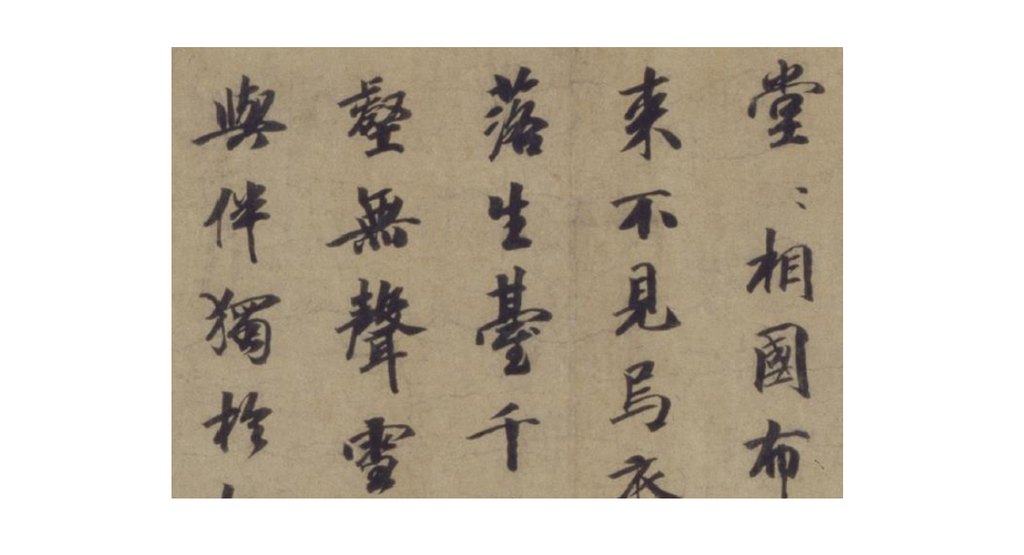 堂〻相國布
来不見烏衣
落生臺千
壑無聲雪
與伴獨於